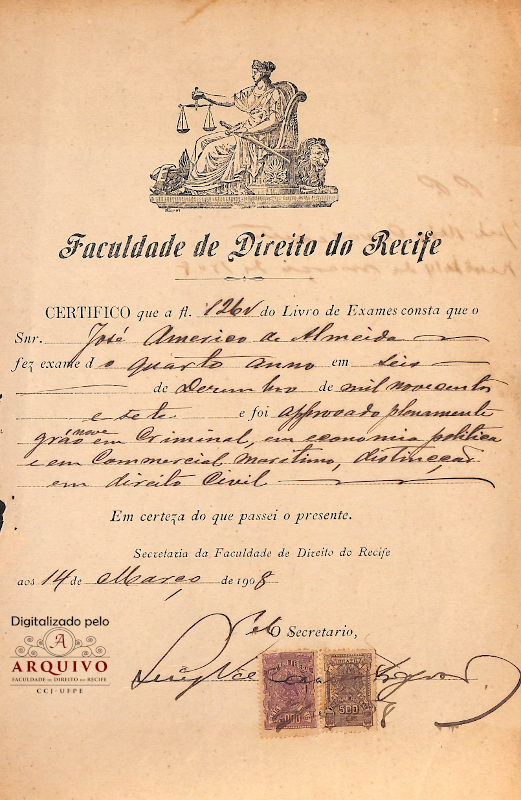 Faculdade de Direito do Recife
CERTIFICO que a fl. 126v do Livro de Exames consta que o
Snr. José Americo de Almeida
fez exame do quarto anno em seis
de Dezembro de mil novecentos
e sete e foi approvado plenamente
gráo nove em Criminal, em economia politica
e em Commercial Maritimo, distincção
em direito Civil
Em certeza do que passei o presente.
Secretaria da Faculdade de Direito do Recife
aos 14 de Março de 1908
O Secretario,
Digitalizado pelo
A
ARQUIVO
FACULDADE DE DIREITO DO RECIFE
CCJ-UFPE
500